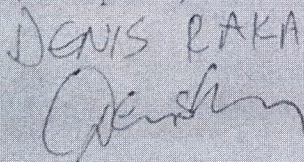 DENIS RAKA